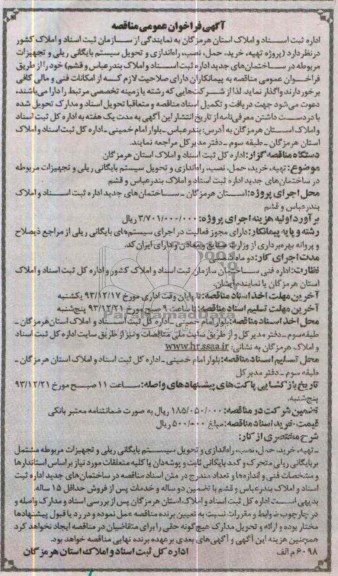 آگهی فراخوان عمومی مناقصه
اداره ثبت اسناد و املاک استان هرمزگان به نمایندگی از سازمان ثبت اسناد و املاک کشور
در نظر دارد (پروژه تهیه، خرید، حمل، نصب، راه‌اندازی و تحویل سیستم بایگانی ریلی و تجهیزات
مربوطه در ساختمان‌های جدید اداره ثبت اسناد و املاک بندرعباس و قشم) خود را از طریق
فراخوان عمومی مناقصه به پیمانکاران دارای صلاحیت لازم که از امکانات فنی و مالی کافی
برخوردارند واگذار نماید. لذا از شرکت‌هایی که رشته یا زمینه تخصصی مرتبط را دارا می‌باشند،
دعوت می‌شود جهت دریافت و تکمیل اسناد مناقصه و متعاقبا تحویل اسناد و مدارک تحویل شده
با در دست داشتن معرفی‌نامه از تاریخ انتشار این آگهی به مدت یک هفته به اداره کل ثبت اسناد
و املاک استان هرمزگان به آدرس: بندرعباس ـ بلوار امام خمینی ـ اداره کل ثبت اسناد و املاک
استان هرمزگان ـ طبقه سوم ـ دفتر مدیر کل مراجعه نمایند.
دستگاه مناقصه گزار: اداره کل ثبت اسناد و املاک استان هرمزگان
موضوع: تهیه، خرید، حمل، نصب، راه‌اندازی و تحویل سیستم بایگانی ریلی و تجهیزات مربوطه
در ساختمان‌های جدید اداره ثبت اسناد و املاک بندرعباس و قشم
محل اجرای پروژه: استان هرمزگان ـ ساختمان‌های جدید اداره ثبت اسناد و املاک
بندرعباس و قشم
برآورد اولیه هزینه اجرای پروژه: ۳/۷۰۱/۰۰۰/۰۰۰ ریال
رشته و پایه پیمانکار: دارای مجوز فعالیت در اجرای سیستم‌های بایگانی ریلی از مراجع ذیصلاح
و پروانه بهره‌برداری از وزارت صنایع و معادن ایران کد
مدت اجرای کار: دو ماه
نظارت: اداره فنی ساختمان سازمان ثبت اسناد و املاک کشور و اداره کل ثبت اسناد و املاک
استان هرمزگان یا نمایندگان ایشان.
آخرین مهلت اخذ اسناد مناقصه: تا پایان وقت اداری مورخ ۹۳/۱۲/۱۷ یکشنبه
آخرین مهلت تسلیم اسناد مناقصه: تا ساعت ۹ صبح مورخ ۹۳/۱۲/۲۱ پنج‌شنبه
محل اخذ اسناد مناقصه: بلوار امام خمینی ـ اداره کل ثبت اسناد و املاک استان هرمزگان ـ
طبقه سوم ـ دفتر مدیر کل و از طریق سایت ملی مناقصات و نیز از طریق سایت اداره کل ثبت اسناد
و املاک هرمزگان به نشانی www.hr.ssaa.ir
محل تسلیم اسناد مناقصه: بلوار امام خمینی ـ اداره کل ثبت اسناد و املاک استان هرمزگان ـ
طبقه سوم ـ دفتر مدیر کل
تاریخ بازگشایی پاکت‌های پیشنهادهای واصله: ساعت ۱۱ صبح مورخ ۹۳/۱۲/۲۱
پنج‌شنبه.
تضمین شرکت در مناقصه: ۱۸۵/۰۵۰/۰۰۰ ریال به صورت ضمانتنامه معتبر بانکی
قیمت خرید اسناد مناقصه: مبلغ ۵۰۰/۰۰۰ ریال
شرح مختصری از کار:
ـ تهیه، خرید، حمل، نصب، راه‌اندازی و تحویل سیستم بایگانی ریلی و تجهیزات مربوطه مشتمل
بر بایگانی ریلی متحرک و کمد بایگانی ثابت و پوشه‌دان با کلیه متعلقات مورد نیاز براساس استانداردها
و مشخصات فنی و اندازه‌ها و تعداد مندرج در متن اسناد مناقصه در ساختمان‌های جدید اداره ثبت
اسناد و املاک بندرعباس و قشم با تضمین دو ساله و خدمات پس از فروش حداقل ۱۵ ساله.
بدیهی است اداره کل ثبت اسناد و املاک استان هرمزگان پس از بررسی اسناد و مدارک واصله و
در چارچوب ضوابط و مقررات نسبت به تعیین برنده مناقصه عمل نموده و در رد یا قبول پیشنهادها
مختار بوده و ارائه و تحویل مدارک هیچ‌گونه حقی را برای متقاضیان در مناقصه ایجاد نخواهد کرد
همچنین هزینه این آگهی و آگهی‌های بعدی بر عهده برنده نهایی مناقصه خواهد بود.
۶۰۹۸ م الف
اداره کل ثبت اسناد و املاک استان هرمزگان